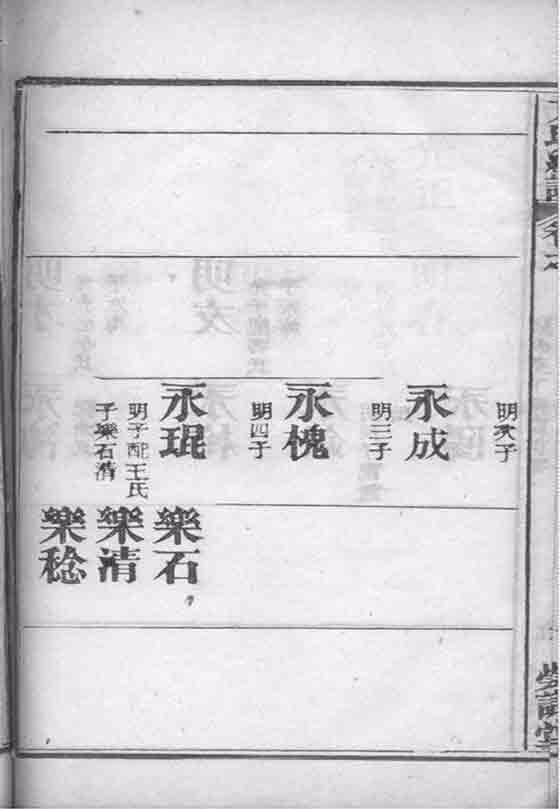 明次子
永成
明三子
永槐
明四子
永琨
明子配王氏
子樂石清
樂石
樂清
樂稔